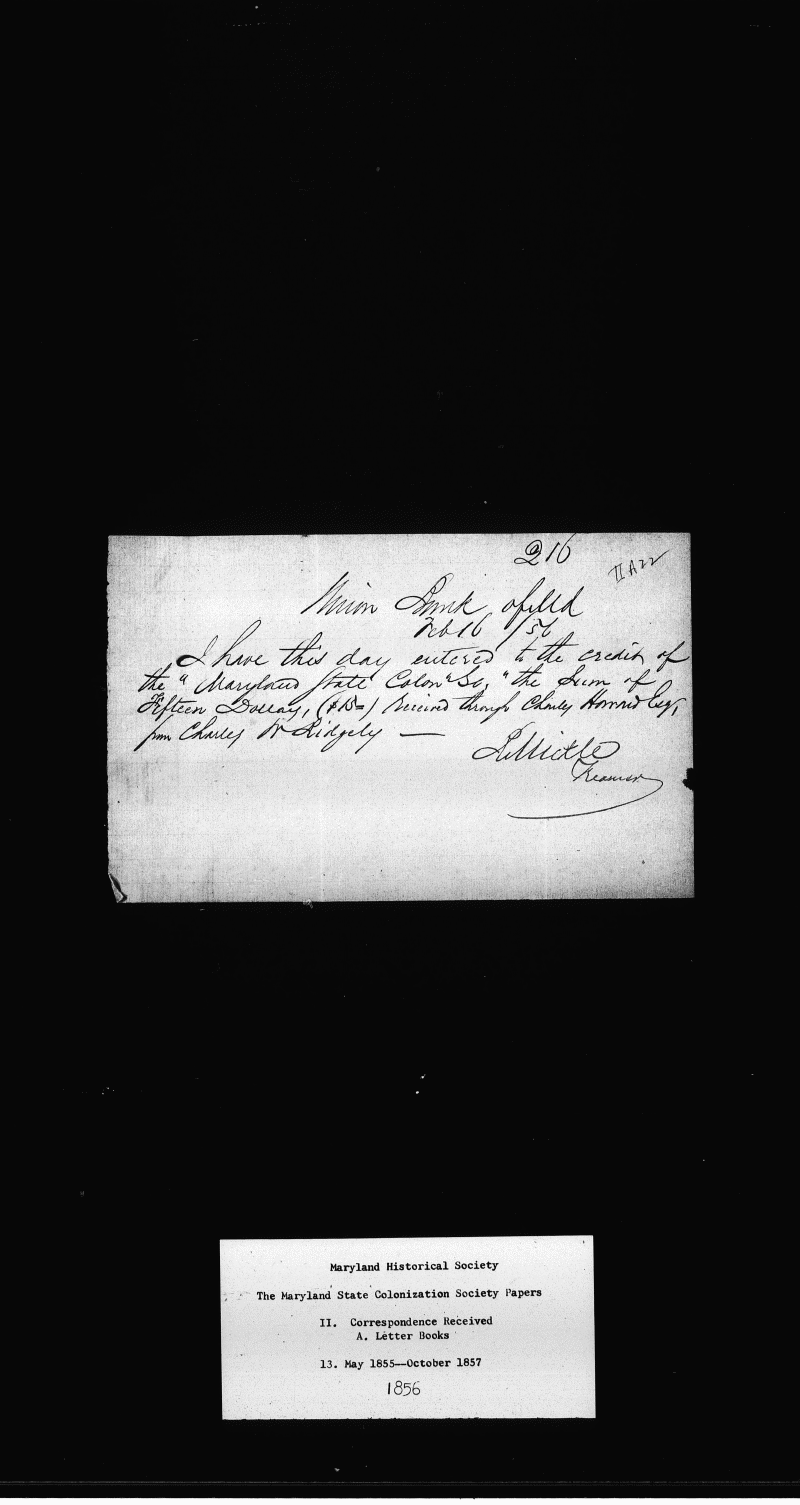 216
II A 22
Union Bank of Md
Feb 16 /56
I have this day entered to the credit of
the "Maryland State Colonn So," the Sum of
Fifteen Dollars, ($15=) Received through Charles Howard Esq,
from Charles W Ridgely —
R Mickle
Maryland Historical Society
The Maryland State Colonization Society Papers
II. Correspondence Received
A. Letter Books
13. May 1855--October 1857
1856